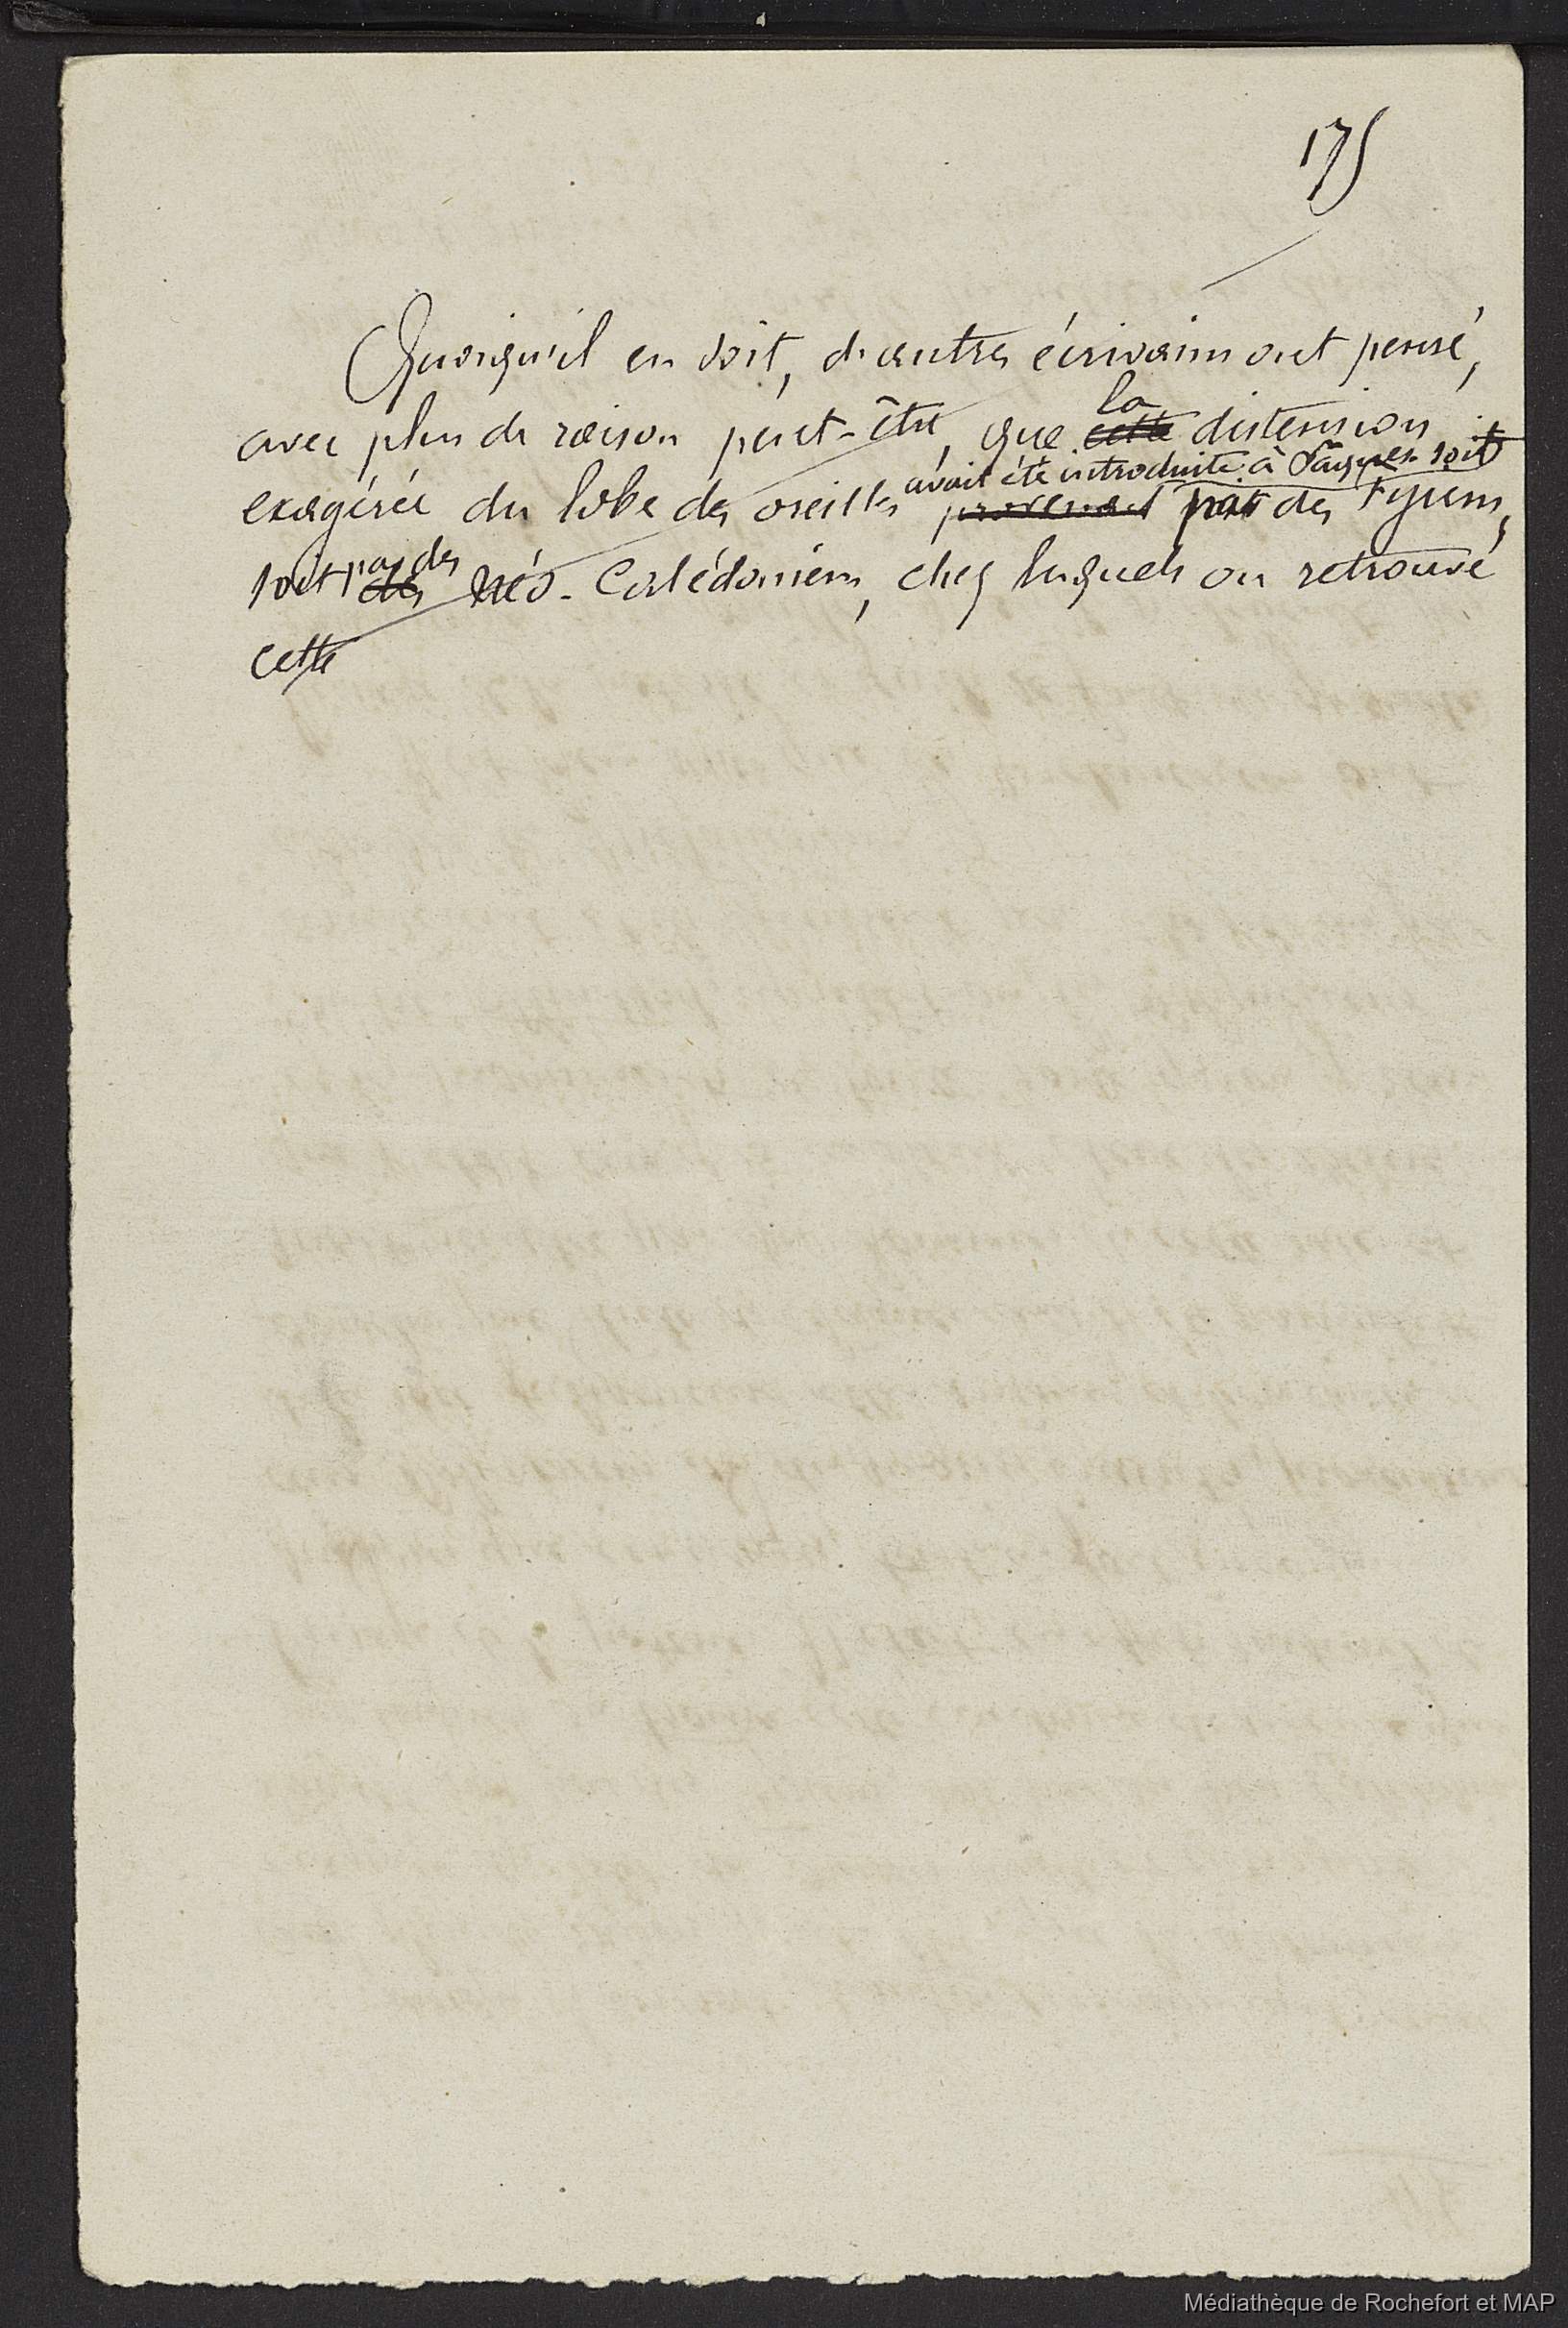 175
Quoiqu'il en soit, d'autres écrivains ont pensé,
avec plus de raison peut-être, que ~~cette~~ la distension
exagérée du lobe des oreilles ~~provenait~~ avait été introduite à Pâques soit par des Fijiens,
soit ~~des~~ par des Néo-Calédoniens, chez lesquels on retrouve
cette
Médiathèque de Rochefort et MAP